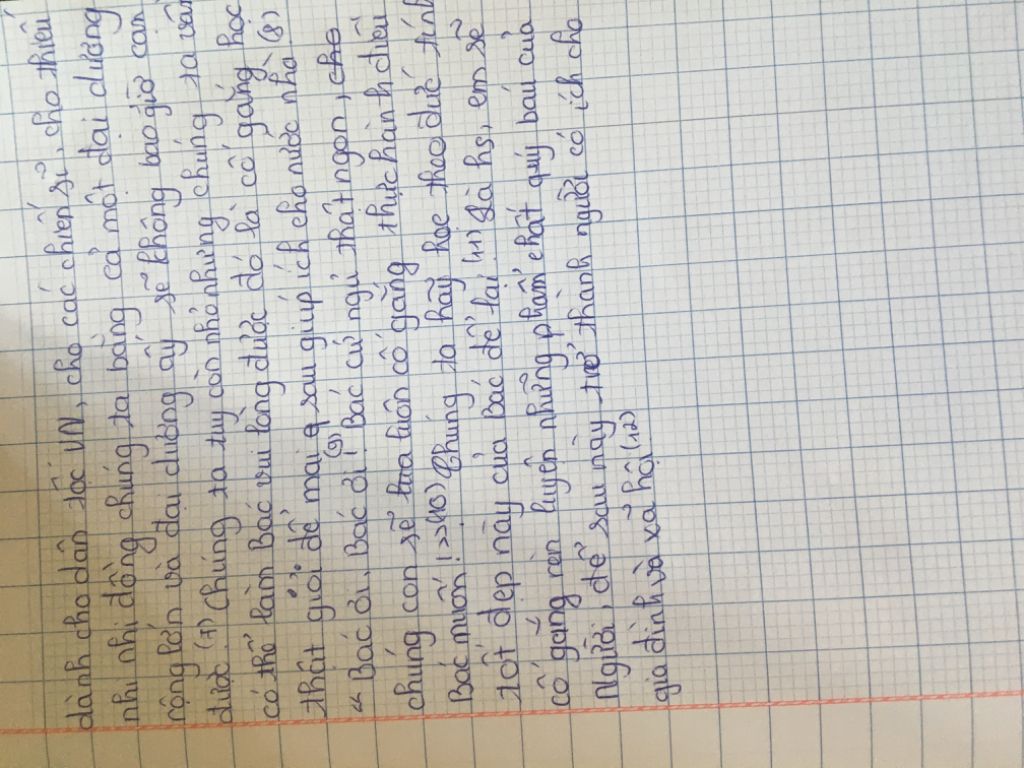 dành cho dân tộc VN, cho các chiến sĩ, cho thiếu
nhi nhi đồng chúng ta bằng cả một đại dương
rộng lớn và đại dương ấy sẽ không bao giờ cạn
được. (7) Chúng ta tuy còn nhỏ nhưng chúng ta vẫn
có thể làm Bác vui lòng được đó là cố gắng học
thật giỏi để mai sau giúp ích cho nước nhà (8)
" Bác ơi, Bác ơi! (9) Bác cứ ngủ thật ngon, cho
chúng con sẽ luôn cố gắng thực hành điều
Bác muốn! (10) Chúng ta hãy học theo đức tính
tốt đẹp này của Bác để lại. (11) Là hs, em sẽ
cố gắng rèn luyện những phẩm chất quý báu của
Người, để sau này trở thành người có ích cho
gia đình và xã hội (12)